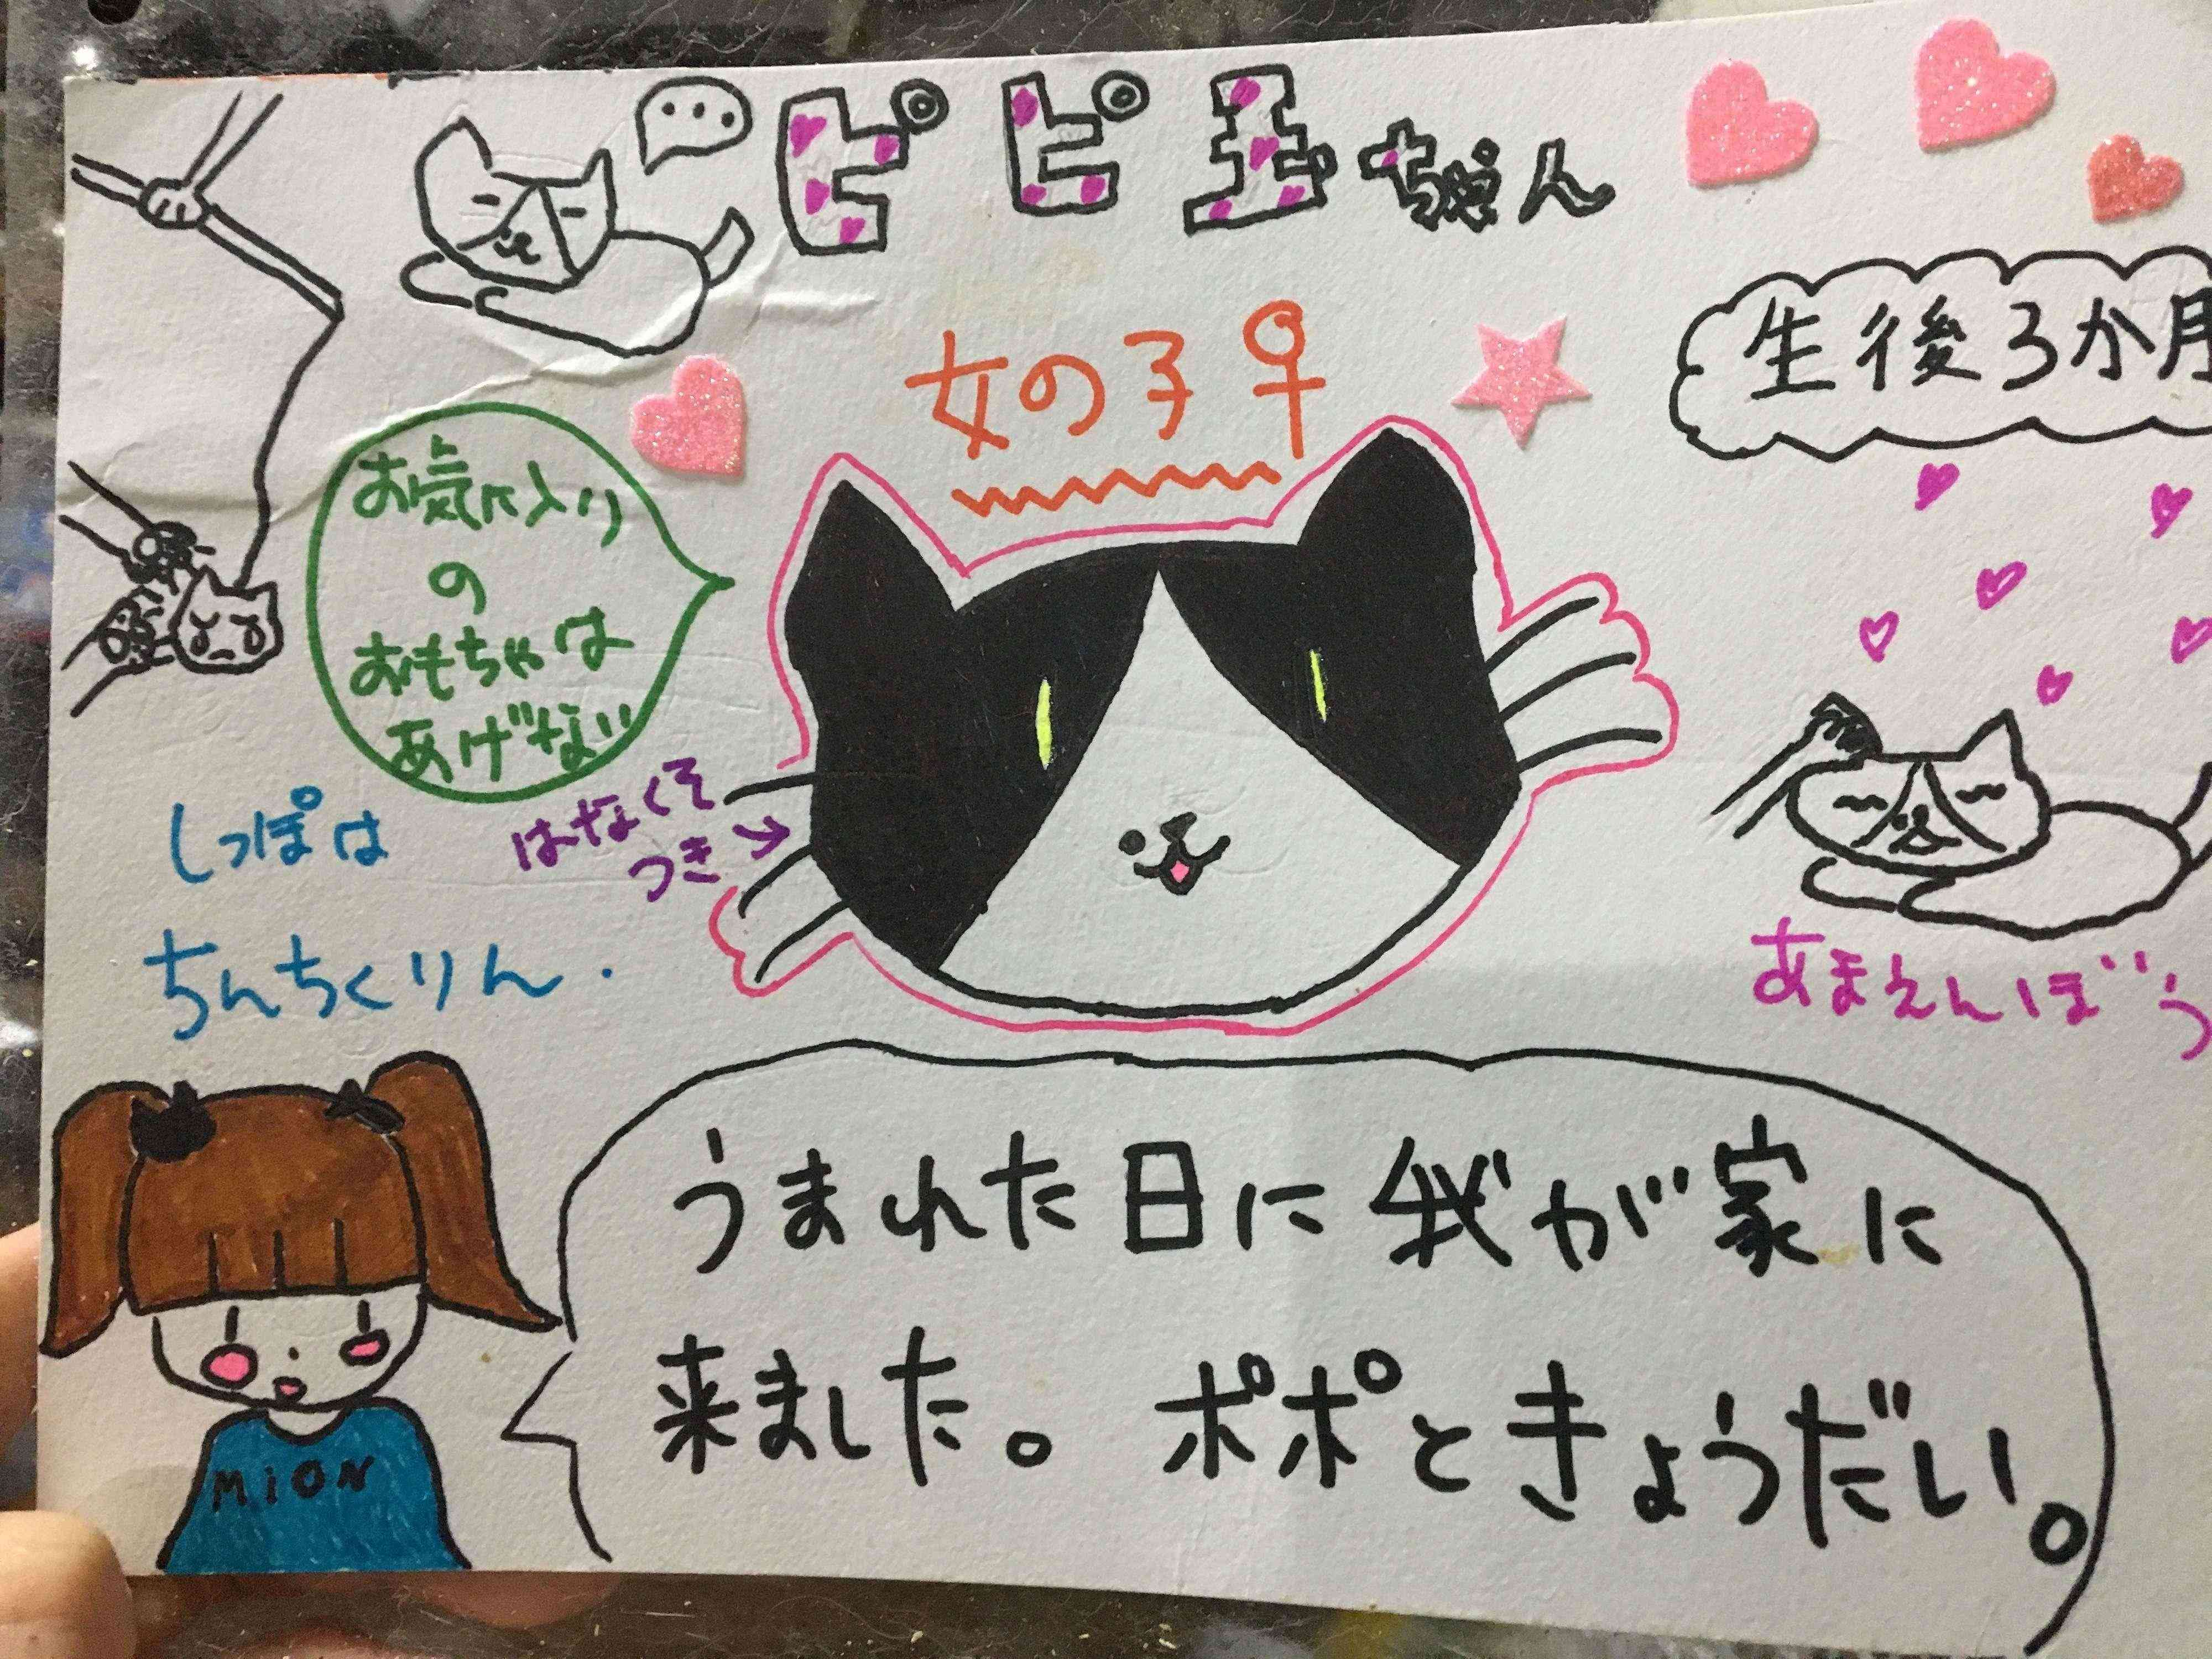 ピピヱちゃん
女の子♀
生後3か月
お気に入り
の
おもちゃは
あげない
はなくそ
つき→
しっぽは
ちんちくりん.
あまえんぼう
うまれた日に我が家に
来ました。ポポときょうだい。
MION